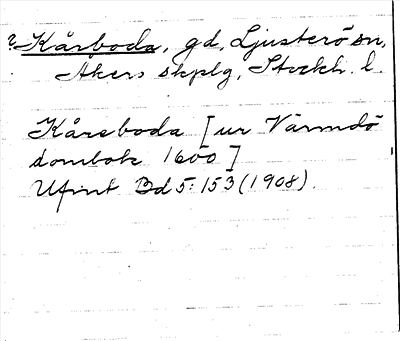 ? Kårboda, gd, Ljusterö sn,
Åkers skplg, Stockh. l.
Kåreboda [ur Värmdö
dombok 1600]
Ufint Bd 5: 153 (1908).